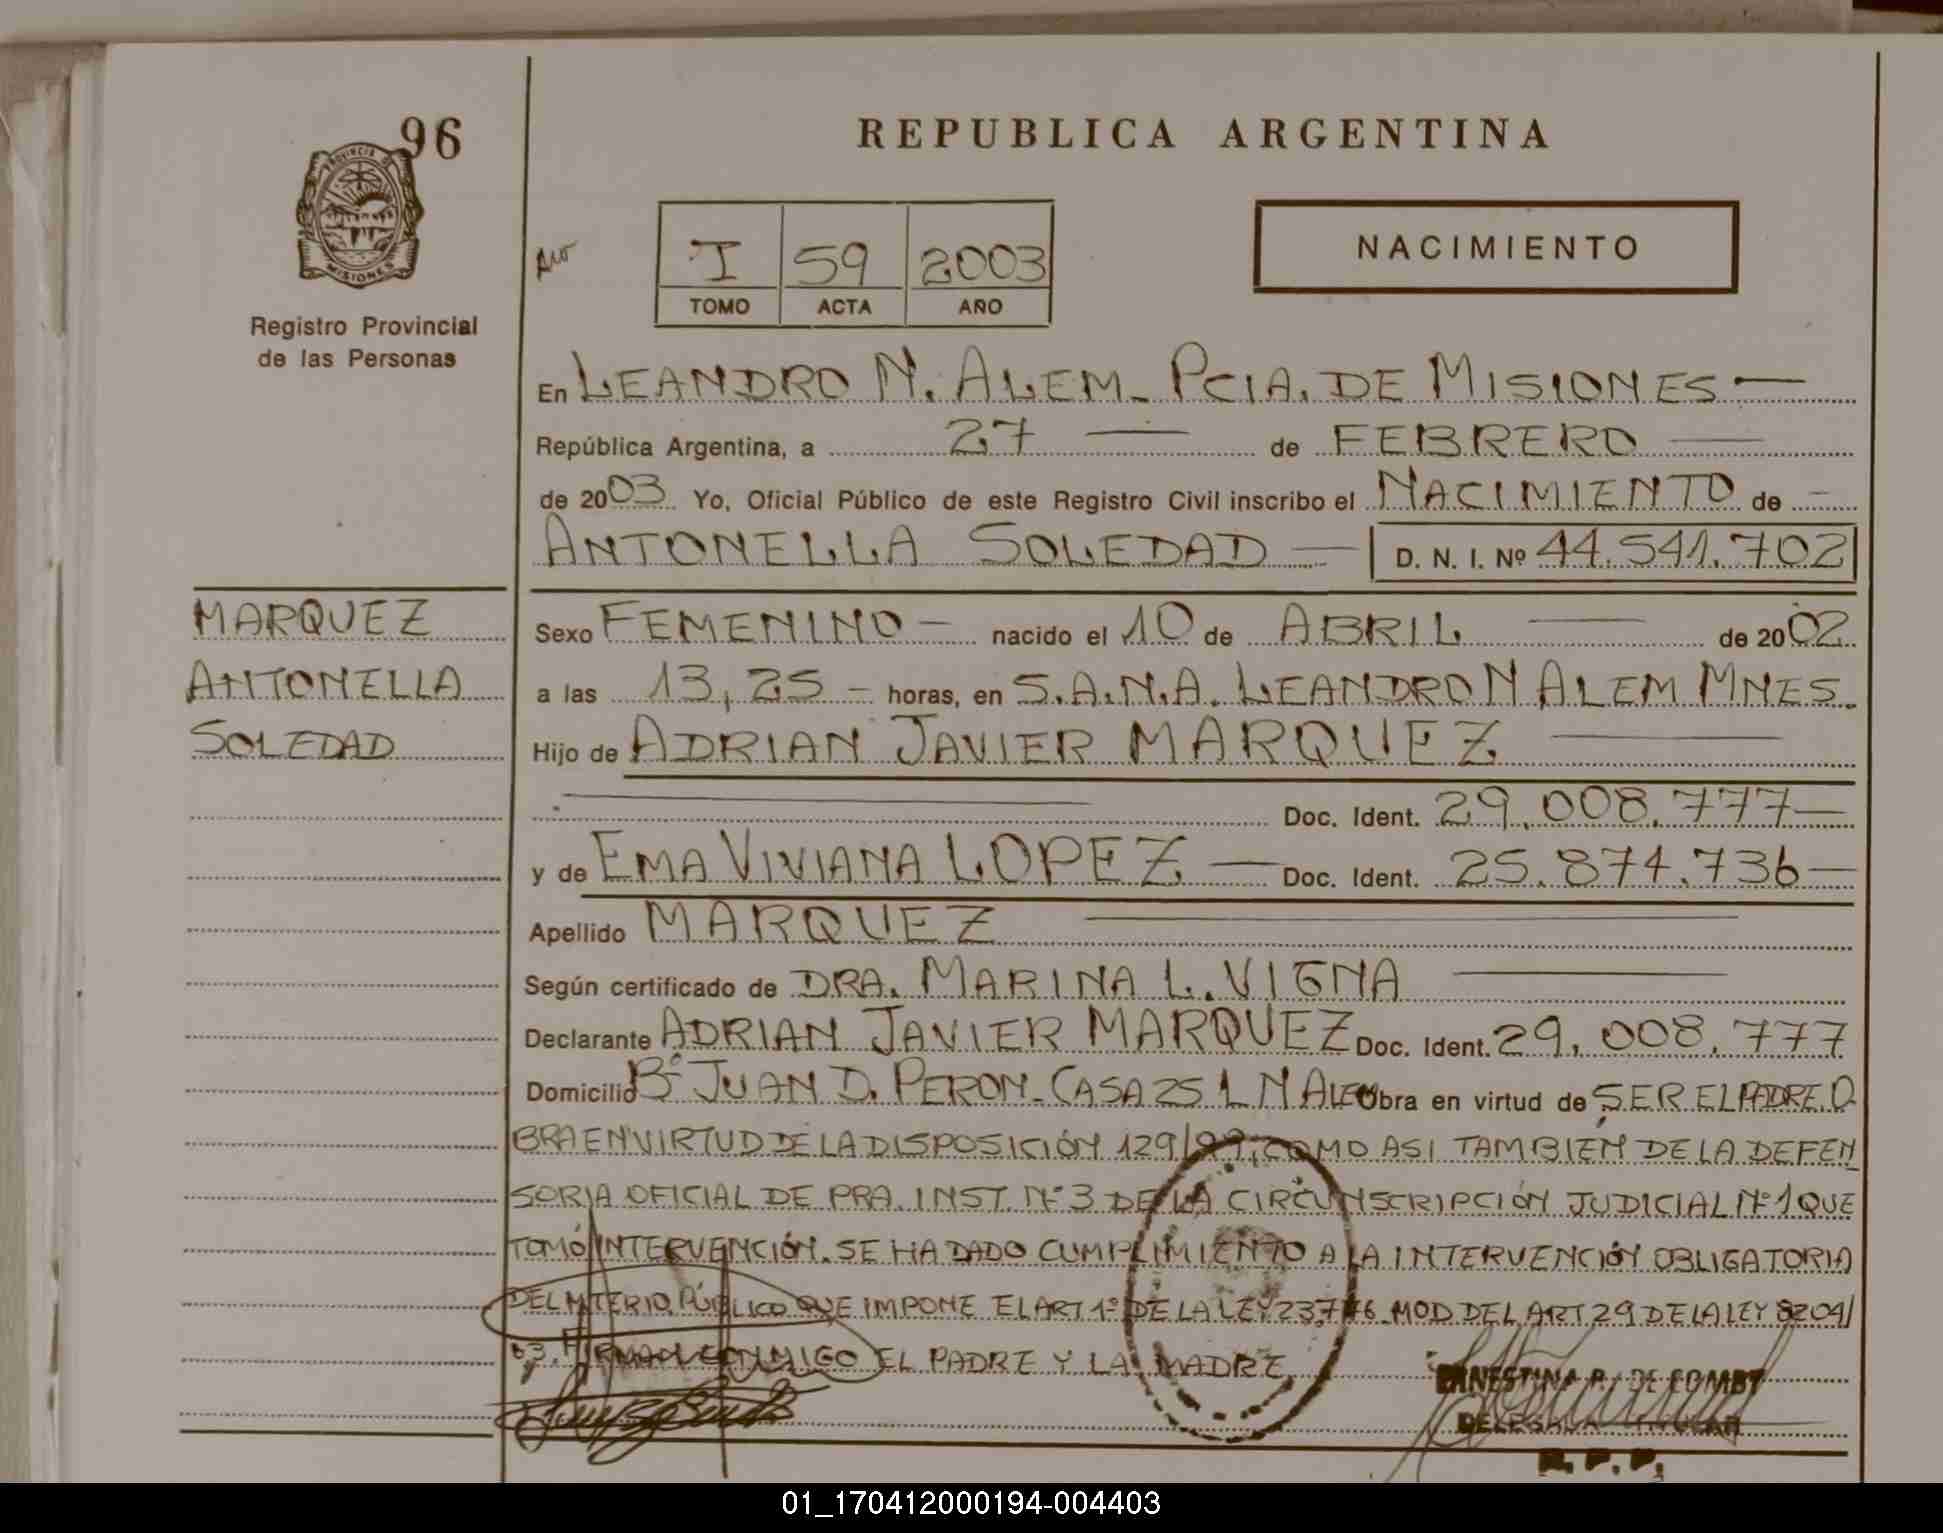 96
REPUBLICA ARGENTINA
PROVINCIA D
MISIONES
Registro Provincial
de las Personas
I 59 2003
TOMO ACTA AÑO
NACIMIENTO
En LEANDRO N. ALEM - PCIA. DE MISIONES —
República Argentina, a 27 — de FEBRERO —
de 2003 Yo, Oficial Público de este Registro Civil inscribo el NACIMIENTO de -
ANTONELLA SOLEDAD — D. N. I. Nº 44.541.702
MARQUEZ
ANTONELLA
SOLEDAD
Sexo FEMENINO - nacido el 10 de ABRIL — de 2002
a las 13,25 - horas, en S.A.N.A. LEANDRO N ALEM MNES.
Hijo de ADRIAN JAVIER MARQUEZ —
— Doc. Ident. 29.008.777 —
y de EMA VIVIANA LOPEZ — Doc. Ident. 25.874.736 —
Apellido MARQUEZ —
Según certificado de DRA. MARINA L. VIGNA —
Declarante ADRIAN JAVIER MARQUEZ Doc. Ident. 29.008.777
Domicilio Bº JUAN D. PERON - CASA 25 L N ALEM Obra en virtud de SER EL PADRE. O
BRA EN VIRTUD DE LA DISPOSICIÓN 129/99, COMO ASI TAMBIÉN DE LA DEFEN
SORIA OFICIAL DE PRA. INST. Nº 3 DE LA CIRCUNSCRIPCIÓN JUDICIAL Nº 1 QUE
TOMÓ INTERVENCIÓN. SE HA DADO CUMPLIMIENTO A LA INTERVENCIÓN OBLIGATORIA
DEL MTERIO PÚBLICO QUE IMPONE EL ART 1º DE LA LEY 23.776 MOD DEL ART 29 DE LA LEY 8204/
63. FIRMAN CONMIGO EL PADRE Y LA MADRE
ERNESTINA R. DE
DELEGADA TITULAR
R. P. P.
01_170412000194-004403